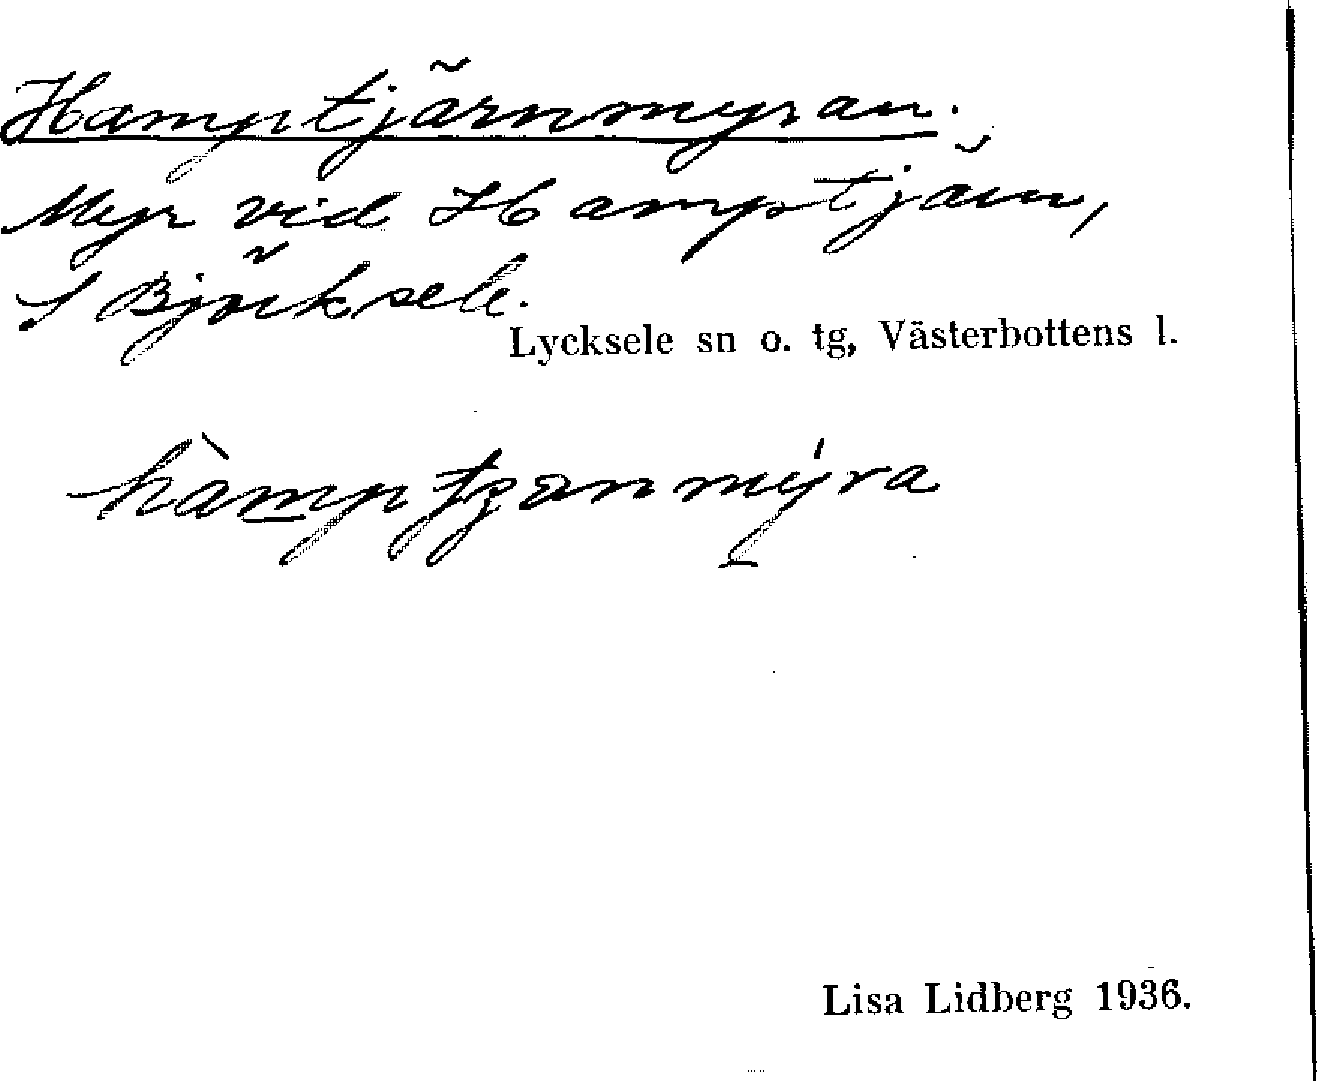 Hamptjärnmyran.
Myr vid Hamptjärn,
S Björksele.
Lycksele sn o. tg, Västerbottens l.
Lisa Lidberg 1936.